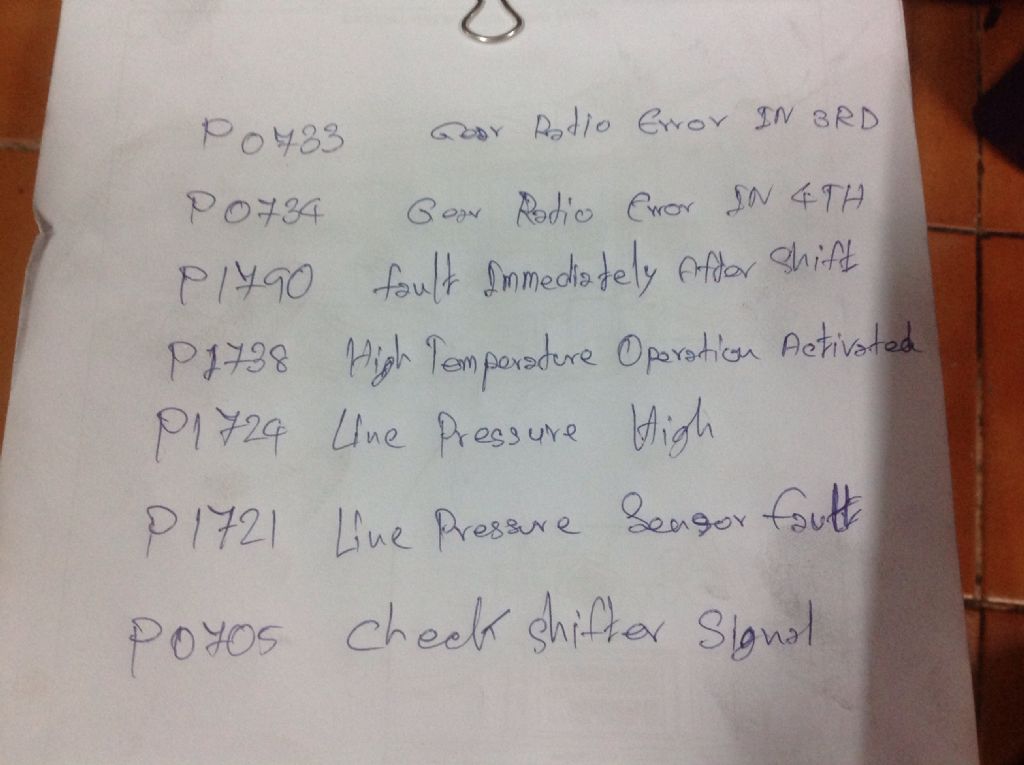 P0733 Gear Radio Error IN 3RD
P0734 Gear Radio Error IN 4TH
P1790 fault Immediately After Shift
P1738 High Temperature Operation Activated
P1724 Line Pressure High
P1721 Line Pressure Sensor fault
P0705 Check Shifter Signal